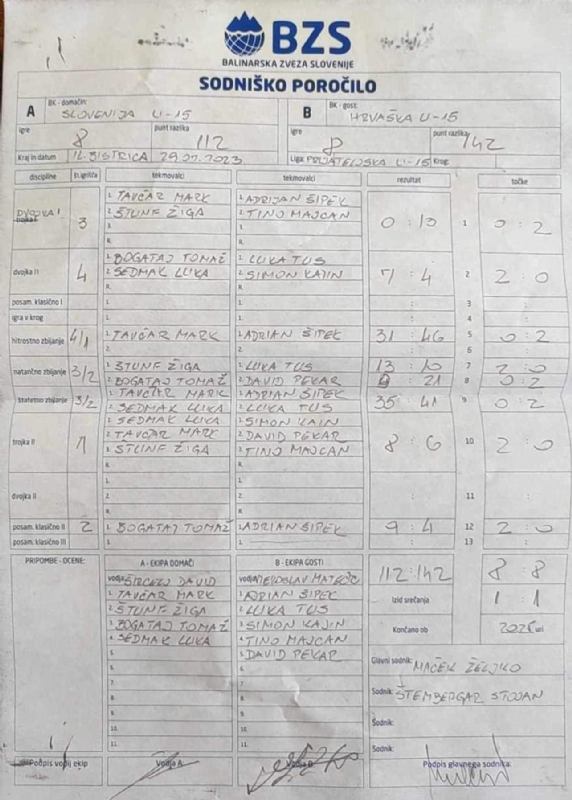 BZS
BALINARSKA ZVEZA SLOVENIJE
SODNIŠKO POROČILO
A BK - domačin: SLOVENIJA U-15 B BK - gost: HRVAŠKA U-15
igre 8 punt razlika 112 igre 8 punt razlika 142
Kraj in datum IL. BISTRICA 29.07.2023 Liga: PRIJATELJSKA U-15 Krog:
discipline št.igrišča tekmovalci tekmovalci rezultat točke
DVOJKA I 3 1. TAVČAR MARK 1. ADRIJAN ŠIPEK 0 : 10 1 0 : 2
2. ŠTUNF ŽIGA 2. TINO MAJCAN
3. 3.
R. R.
dvojka II 4 1. BOGATAJ TOMAŽ 1. LUKA TUS 7 : 4 2 2 : 0
2. SEDMAK LUKA 2. SIMON KAJIN
R. R.
posam. klasično I 1. 1. : 3 :
igra v krog 1. 1. : 4 :
hitrostno zbijanje 4/1 1. TAVČAR MARK 1. ADRIAN ŠIPEK 31 : 46 5 0 : 2
2. 2. : 6 :
natančno zbijanje 3/2 1. ŠTUNF ŽIGA 1. LUKA TUS 13 : 10 7 2 : 0
2. BOGATAJ TOMAŽ 2. DAVID PEKAR : 21 8 0 : 2
štafetno zbijanje 3/2 TAVČAR MARK ADRIAN ŠIPEK 35 : 41 9 0 : 2
SEDMAK LUKA LUKA TUS
trojka II 1 SEDMAK LUKA SIMON KAJIN 8 : 6 10 2 : 0
2. TAVČAR MARK 2. DAVID PEKAR
3. ŠTUNF ŽIGA 3. TINO MAJCAN
R. R.
dvojka II 1. 1. : 11 :
2. 2.
R. R.
posam. klasično II 2 1. BOGATAJ TOMAŽ 1. ADRIAN ŠIPEK 9 : 4 12 2 : 0
posam. klasično III 1. 1. : 13 :
PRIPOMBE - OCENE: A - EKIPA DOMAČI B - EKIPA GOSTI 112 : 142 8 : 8
vodja DAVID vodja
1. TAVČAR MARK 1. ADRIAN ŠIPEK Izid srečanja 1 : 1
2. ŠTUNF ŽIGA 2. LUKA TUS
3. BOGATAJ TOMAŽ 3. SIMON KAJIN Končano ob uri
4. SEDMAK LUKA 4. TINO MAJCAN
5. 5. DAVID PEKAR Glavni sodnik: MAČEK ŽELJKO
6. 6.
7. 7. Sodnik: ŠTEMBERGAR STOJAN
8. 8.
9. 9. Sodnik:
10. 10.
11. 11. Sodnik:
Podpis vodij ekip Vodja A Vodja B Podpis glavnega sodnika: